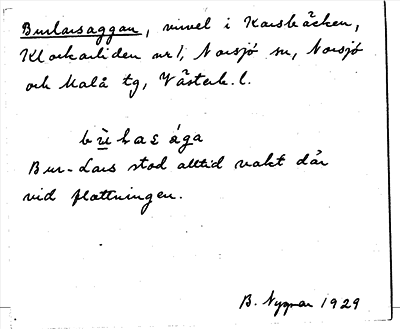 Burlarsaggan, vinvel i Karsbäcken,
Klockarliden nr 1, Norsjö sn, Norsjö
och Malå tg, Västerb. l.
Bur-Lars stod alltid vakt där
vid flottningen.
B. Nyman 1929